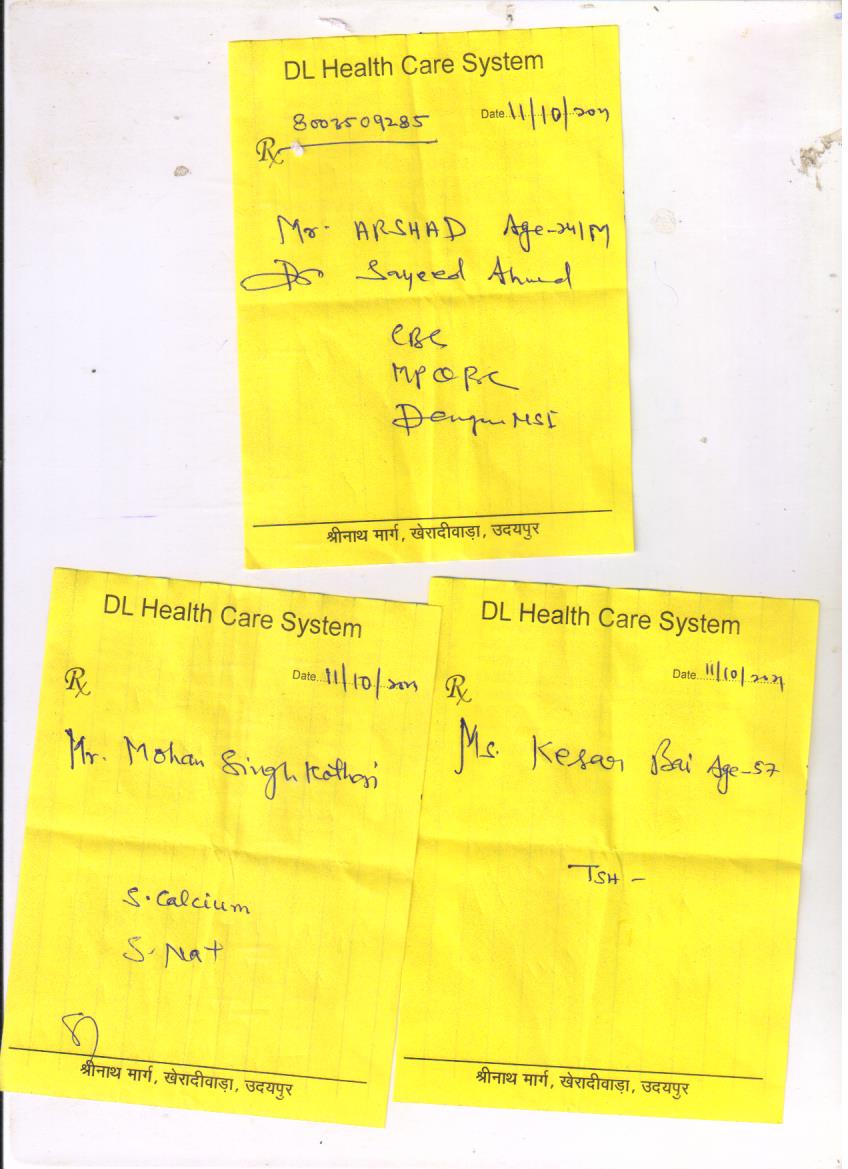 DL Health Care System
8003509285
Date 11/10/2021
Rx
Mr. ARSHAD Age-24/M
Dr Sayeed Ahmed
CBC
MP QBC
Dengue NS1
श्रीनाथ मार्ग, खेरादीवाड़ा, उदयपुर
DL Health Care System
Date 11/10/2021
Rx
Mr. Mohan Singh Kothari
S. Calcium
S. Na+
श्रीनाथ मार्ग, खेरादीवाड़ा, उदयपुर
DL Health Care System
Date 11/10/2021
Rx
Ms. Kesar Bai Age-57
TSH -
श्रीनाथ मार्ग, खेरादीवाड़ा, उदयपुर